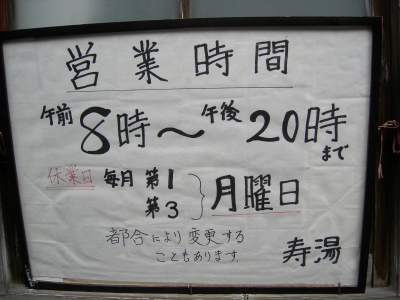 営業時間
午前8時～午後20時まで
休業日 毎月 第1 第3 月曜日
都合により変更する
こともあります.
寿湯